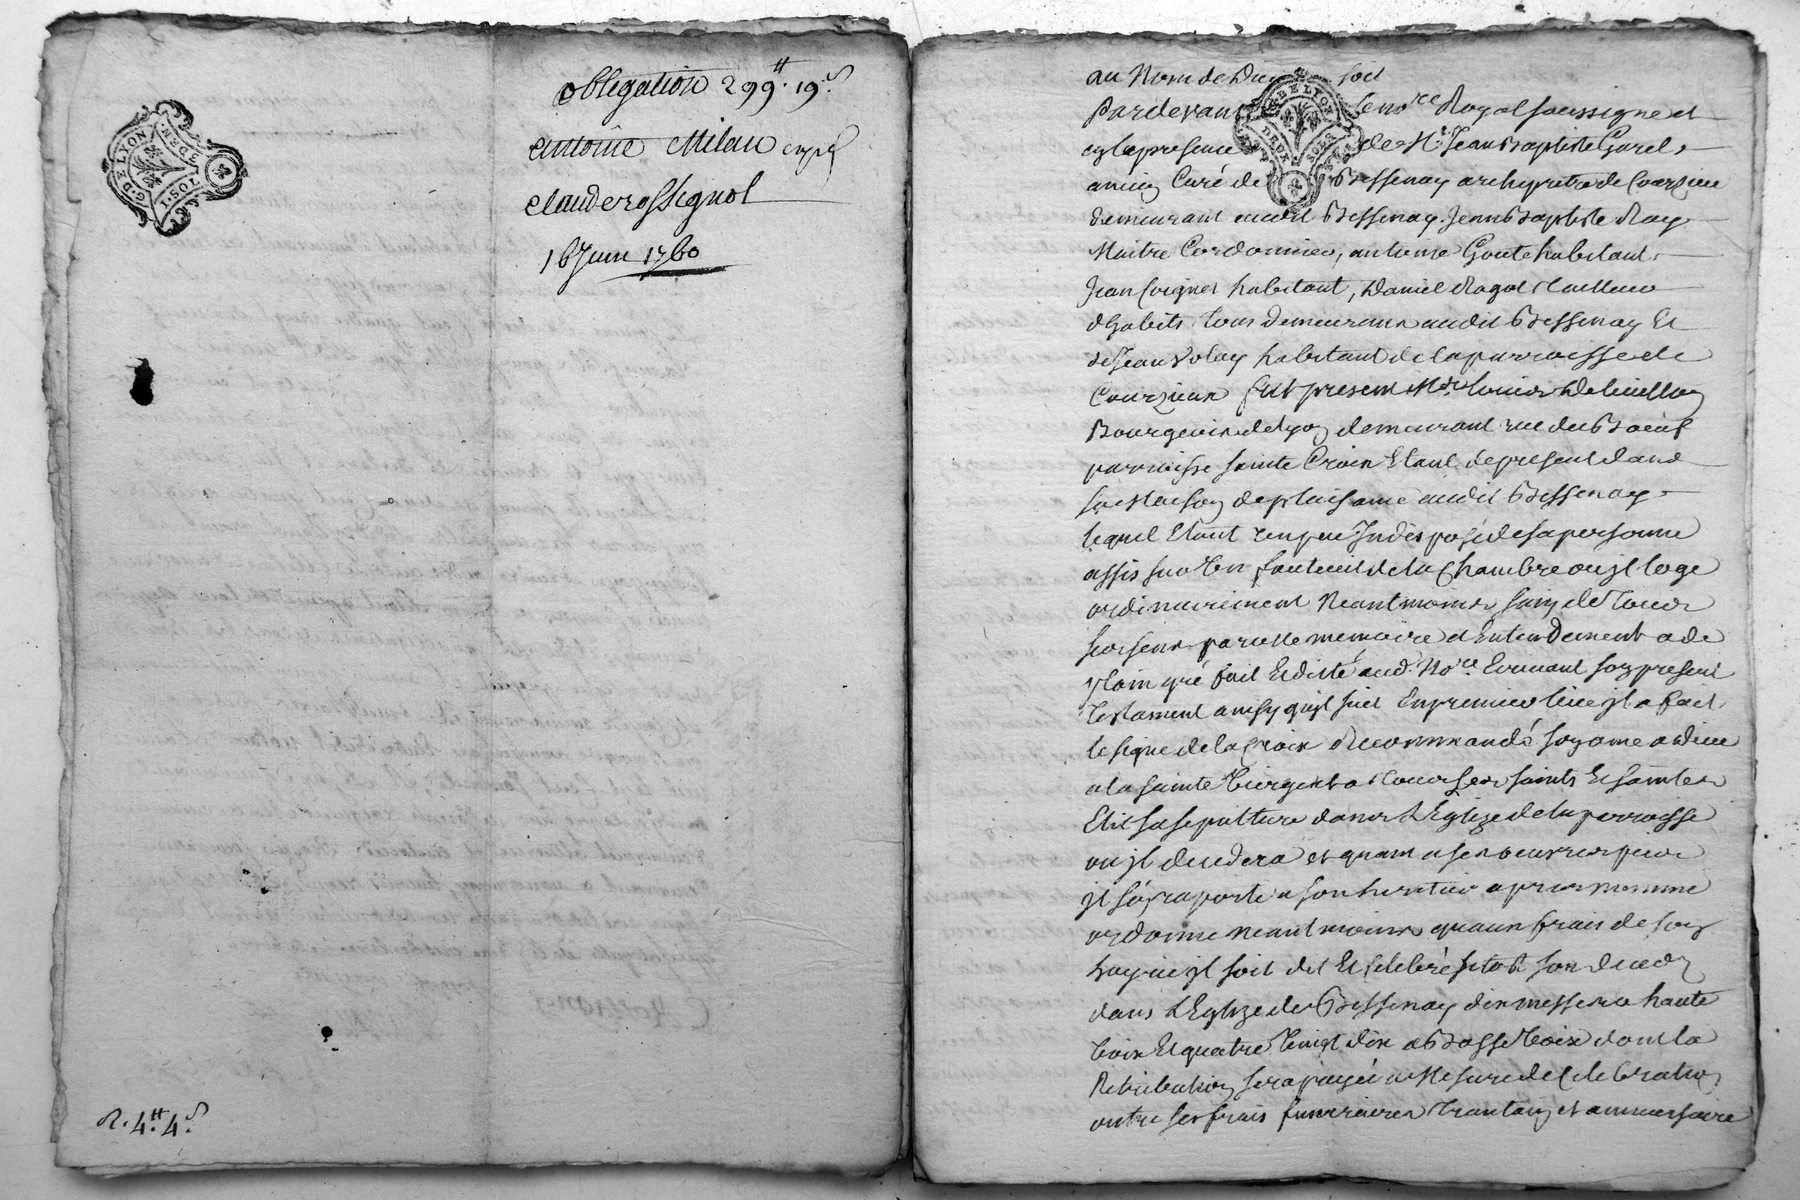 obligation 299tt. 19s
antoine Milan
claude rossignol
16 Juin 1760
G. DE LYON
3 DEN.
R. 4tt. 4s
au Nom de Dieu soit
Pardevant le nore Royal soussigne et
en la presence de Mr. Jean baptiste Garel
ancien Curé de Bessenay archipretre de Courzieu
demeurant audit Bessenay, Jean Baptiste Ray
Maitre Cordonnier, antoine Goute habitant
Jean Coignet habitant, Daniel Ragot tailleur
dhabits tous demeurant audit Bessenay Et
de Jean habitant de la parroisse de
Courzieux fut present
Bourgeois de Lyon demeurant rue du Boeuf
parroisse sainte Croix Etant de present dans
sa Maison de plaisance audit Bessenay
lequel Etant un peu Indisposé de sa personne
assis sur un fauteuil de la Chambre ou jl loge
ordinairement Neantmoins sain de tous
ses sens parolle memoire et Entendement a de
plain gré fait Et dicté aud. Nore. Ecrivant son present
testament ainsy qu'jl suit En premier lieu jl a fait
le signe de la Croix Recommandé son ame a Dieu
a la sainte Vierge et a tous les saints Et saintes
Elit sa sepulture dans L'Eglize de la parroisse
ou jl decedera et quant a ses oeuvres pies
jl s'en raporte a son heritier apres nommé
ordonne neantmoins quaux frais de son
hoyrie jl soit dit Et celebré sitost son decedz
dans L'Eglize de Bessenay dix messes a haute
Voix Et quatre Vingt dix a Basse Voix dont la
Retribution sera payée a Mesure de Celebration
outre ses frais funeraires trantain et anniversaire